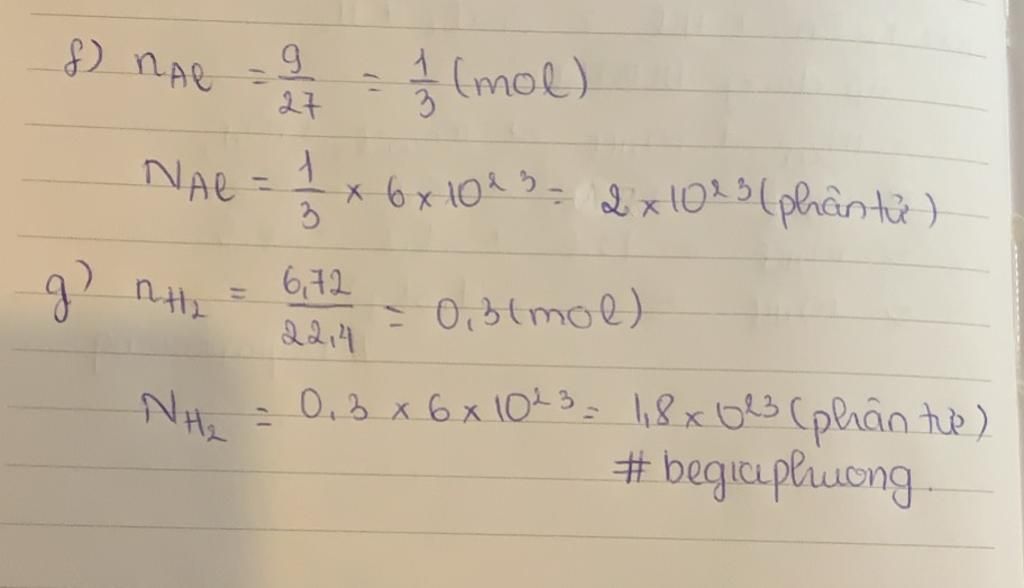 f) nAl = 9/27 = 1/3 (mol)
NAl = 1/3 × 6 × 10²³ = 2 × 10²³ (phân tử)
g) nH₂ = 6,72/22,4 = 0,3 (mol)
NH₂ = 0,3 × 6 × 10²³ = 1,8 × 0²³ (phân tử)
# begiaphuong.